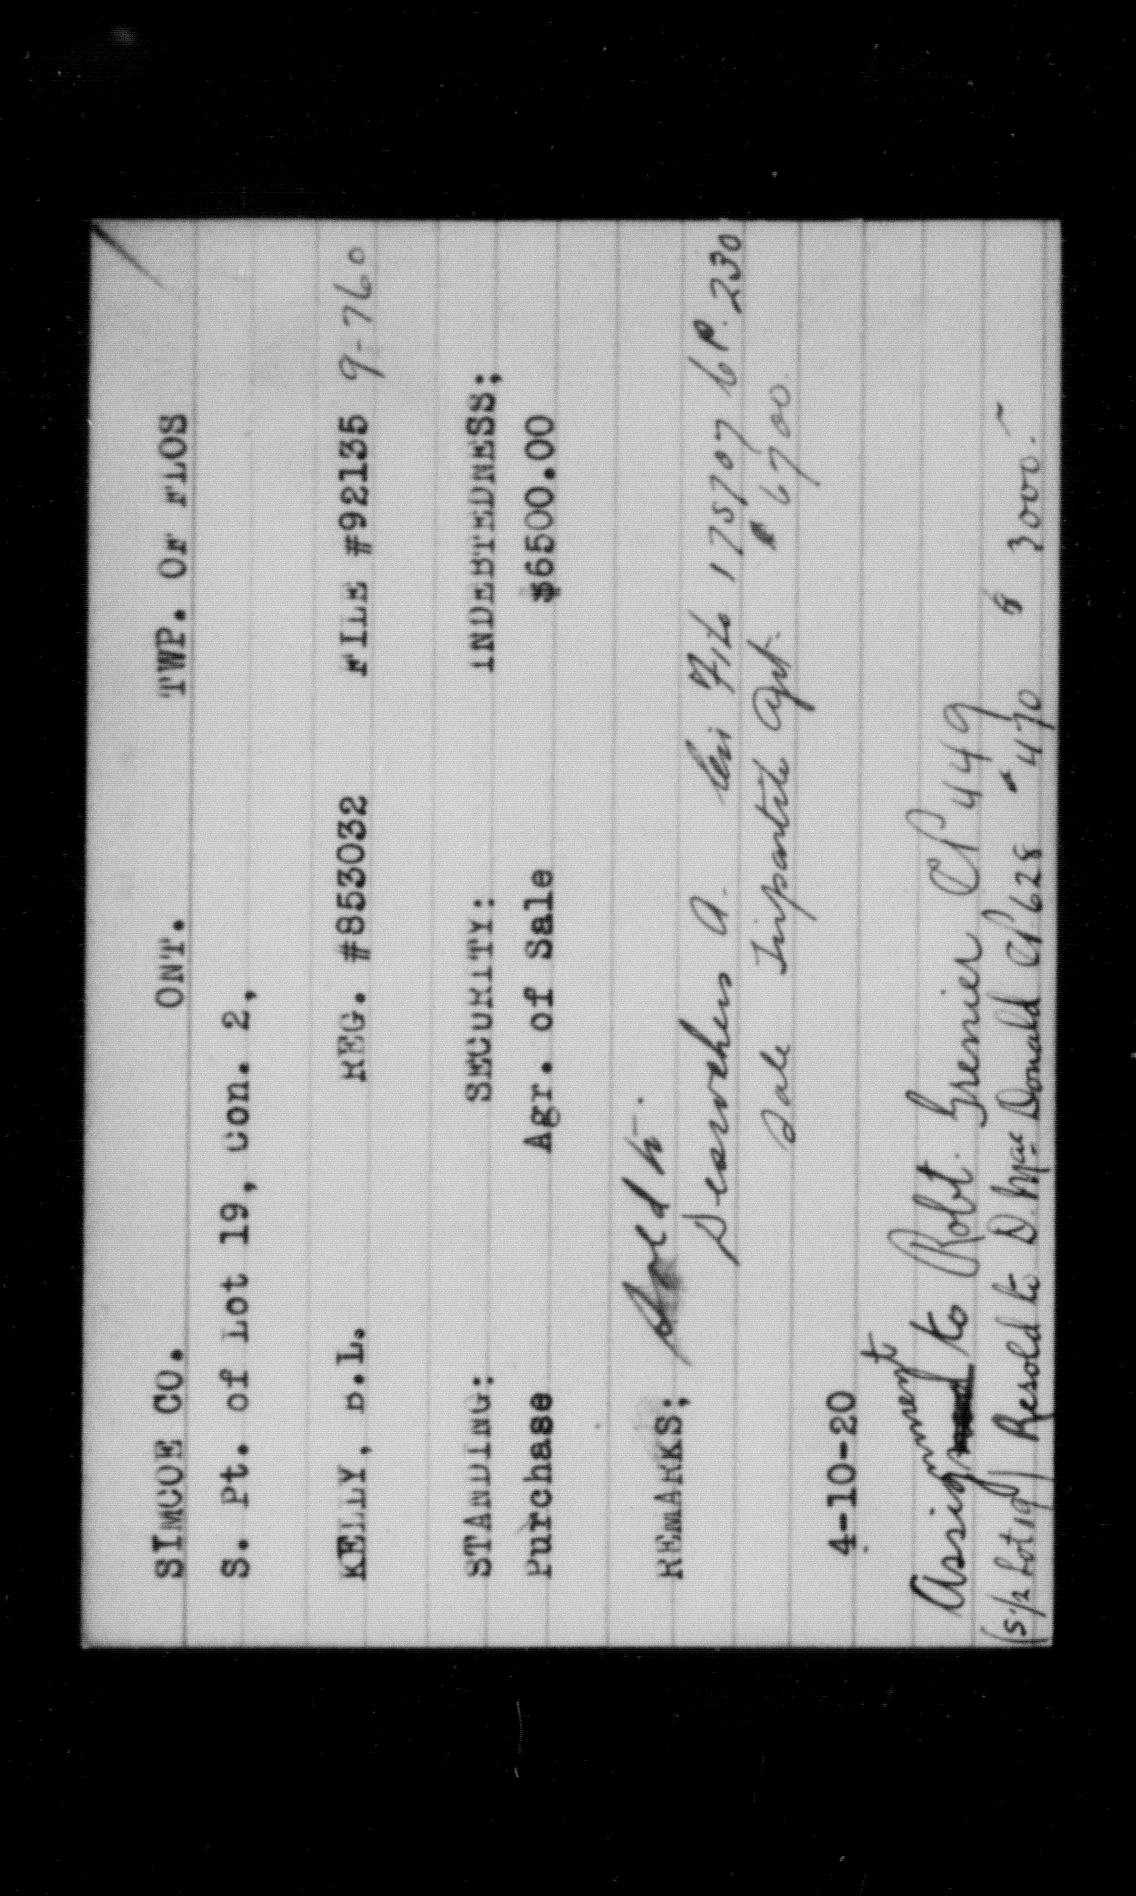 SIMCOE CO. ONT. TWP. OF FLOS
S. Pt. of Lot 19, Con. 2,
KELLY, B.L. REG. #853032 FILE #92135 9-760
STANDING: SECURITY: INDEBTEDNESS:
Purchase Agr. of Sale $6500.00
REMARKS: Sold to.
A. File 175707 C.P. 230
Sale Tripartite Agt. $6700.
4-10-20
Assignment to Robt. Grenier CP 449
(S 1/2 Lot 19) Resold to D. MacDonald CP 628 #470 $ 3000.-